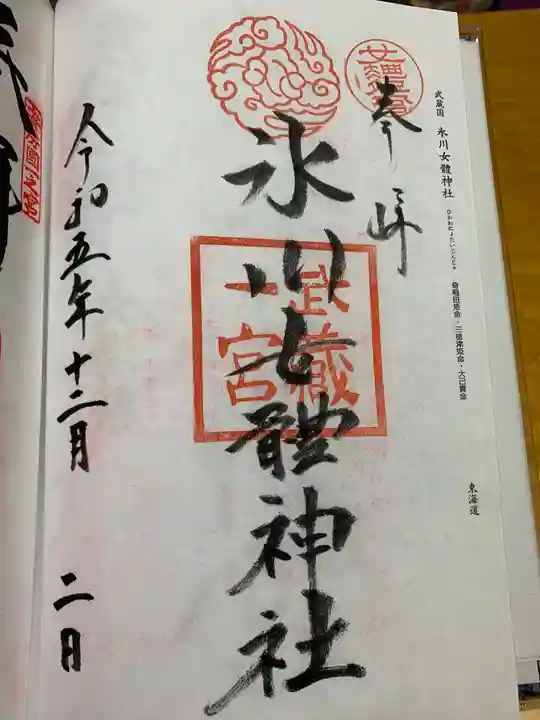 武蔵国 氷川女體神社
ひかわにょたいじんじゃ
奇稲田姫命・三穂津姫命・大己貴命
東海道
奉拝
氷川女體神社
武蔵
一宮
令和五年十二月 二日